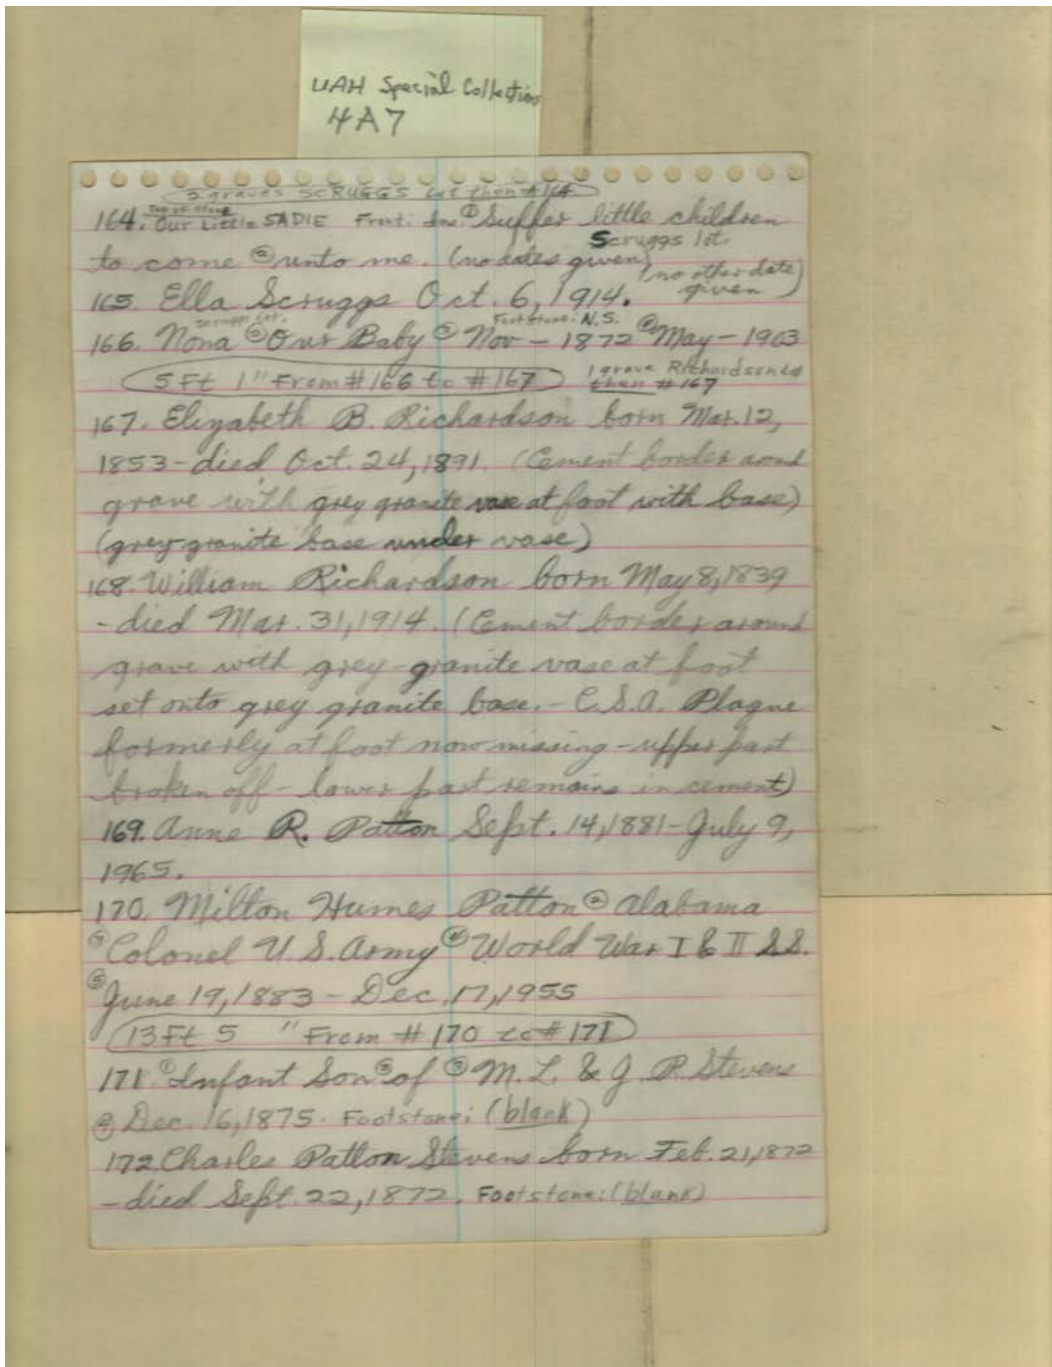 UAH Special Collection
4A7
3 graves SCRUGGS lot then #164
164. Top of stone Our Little SADIE Front: Ins. ① Suffer little children
Scruggs lot.
to come ② unto me. (no dates given)
165. Ella Scruggs Oct. 6, 1914. (no other date given)
Scruggs lot. Footstone: N.S.
166. Nona ② Our Baby ③ Nov - 1872 ④ May - 1903
5 Ft 1" From #166 to #167 1 grave Richardson lot then #167
167. Elizabeth B. Richardson born Mar. 12,
1853 - died Oct. 24, 1891. (Cement border around
grave with grey granite vase at foot with base)
(grey granite base under vase)
168. William Richardson born May 8, 1839
- died Mar. 31, 1914. (Cement border around
grave with grey granite vase at foot
set onto grey granite base. - C.S.A. Plaque
formerly at foot now missing - upper part
broken off - lower part remains in cement)
169. Anne R. Patton Sept. 14, 1881 - July 9,
1965.
170. Milton Humes Patton ② Alabama
③ Colonel U.S. Army ④ World War I & II S.S.
⑤ June 19, 1883 - Dec. 17, 1955
13 Ft 5 " From #170 to #171
171. ① Infant Son ② of ③ M. L. & J. P. Stevens
④ Dec. 16, 1875. Footstone: (blank)
172. Charles Patton Stevens born Feb. 21, 1872
- died Sept. 22, 1872. Footstone: (blank)